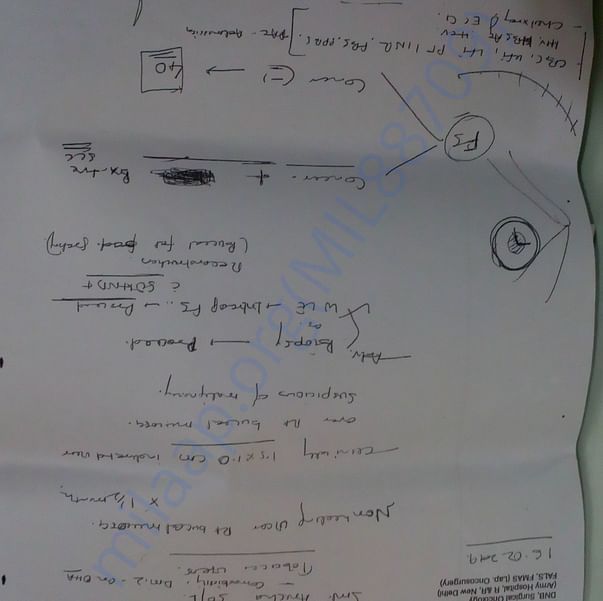 DNB, Surgical Oncology
(Army Hospital R&R, New Delhi)
FALS, FMAS (Lap. Oncosurgery)
16.02.2019
Smt.
50/F
- Comorbidity - Dm-2 - on OHA
Tobacco users.
Non healing ulcer Rt buccal mucosa.
x 1½ month.
- Clinically 1.5x1.0 cm indurated ulcer
over Rt buccal mucosa.
Suspicious of malignancy.
Adv. Biopsy → Proceed.
or
WLE → Intraop FS .. → Proceed
SOHND +
Reconstruction
(Buccal fat pad
Cancer - + Bx-tve
SCC
FS
Cancer (-) →
- CBC, KFT, LFT PT/INR, FBS, PPBS
HIV, HBsAg HCV
- Chest xray, ECG
PAC -
milaap.org/MIL88709